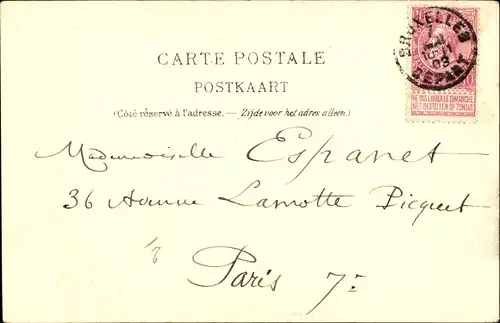 CARTE POSTALE
POSTKAART
(Côté réservé à l'adresse. — Zijde voor het adres alleen.)
BRUXELLES
DEPART
NE PAS LIVRER LE DIMANCHE
NIET BESTELLEN OP ZONDAG
Mademoiselle Espanet
36 Avenue Lamotte Picquet
à
Paris 7e